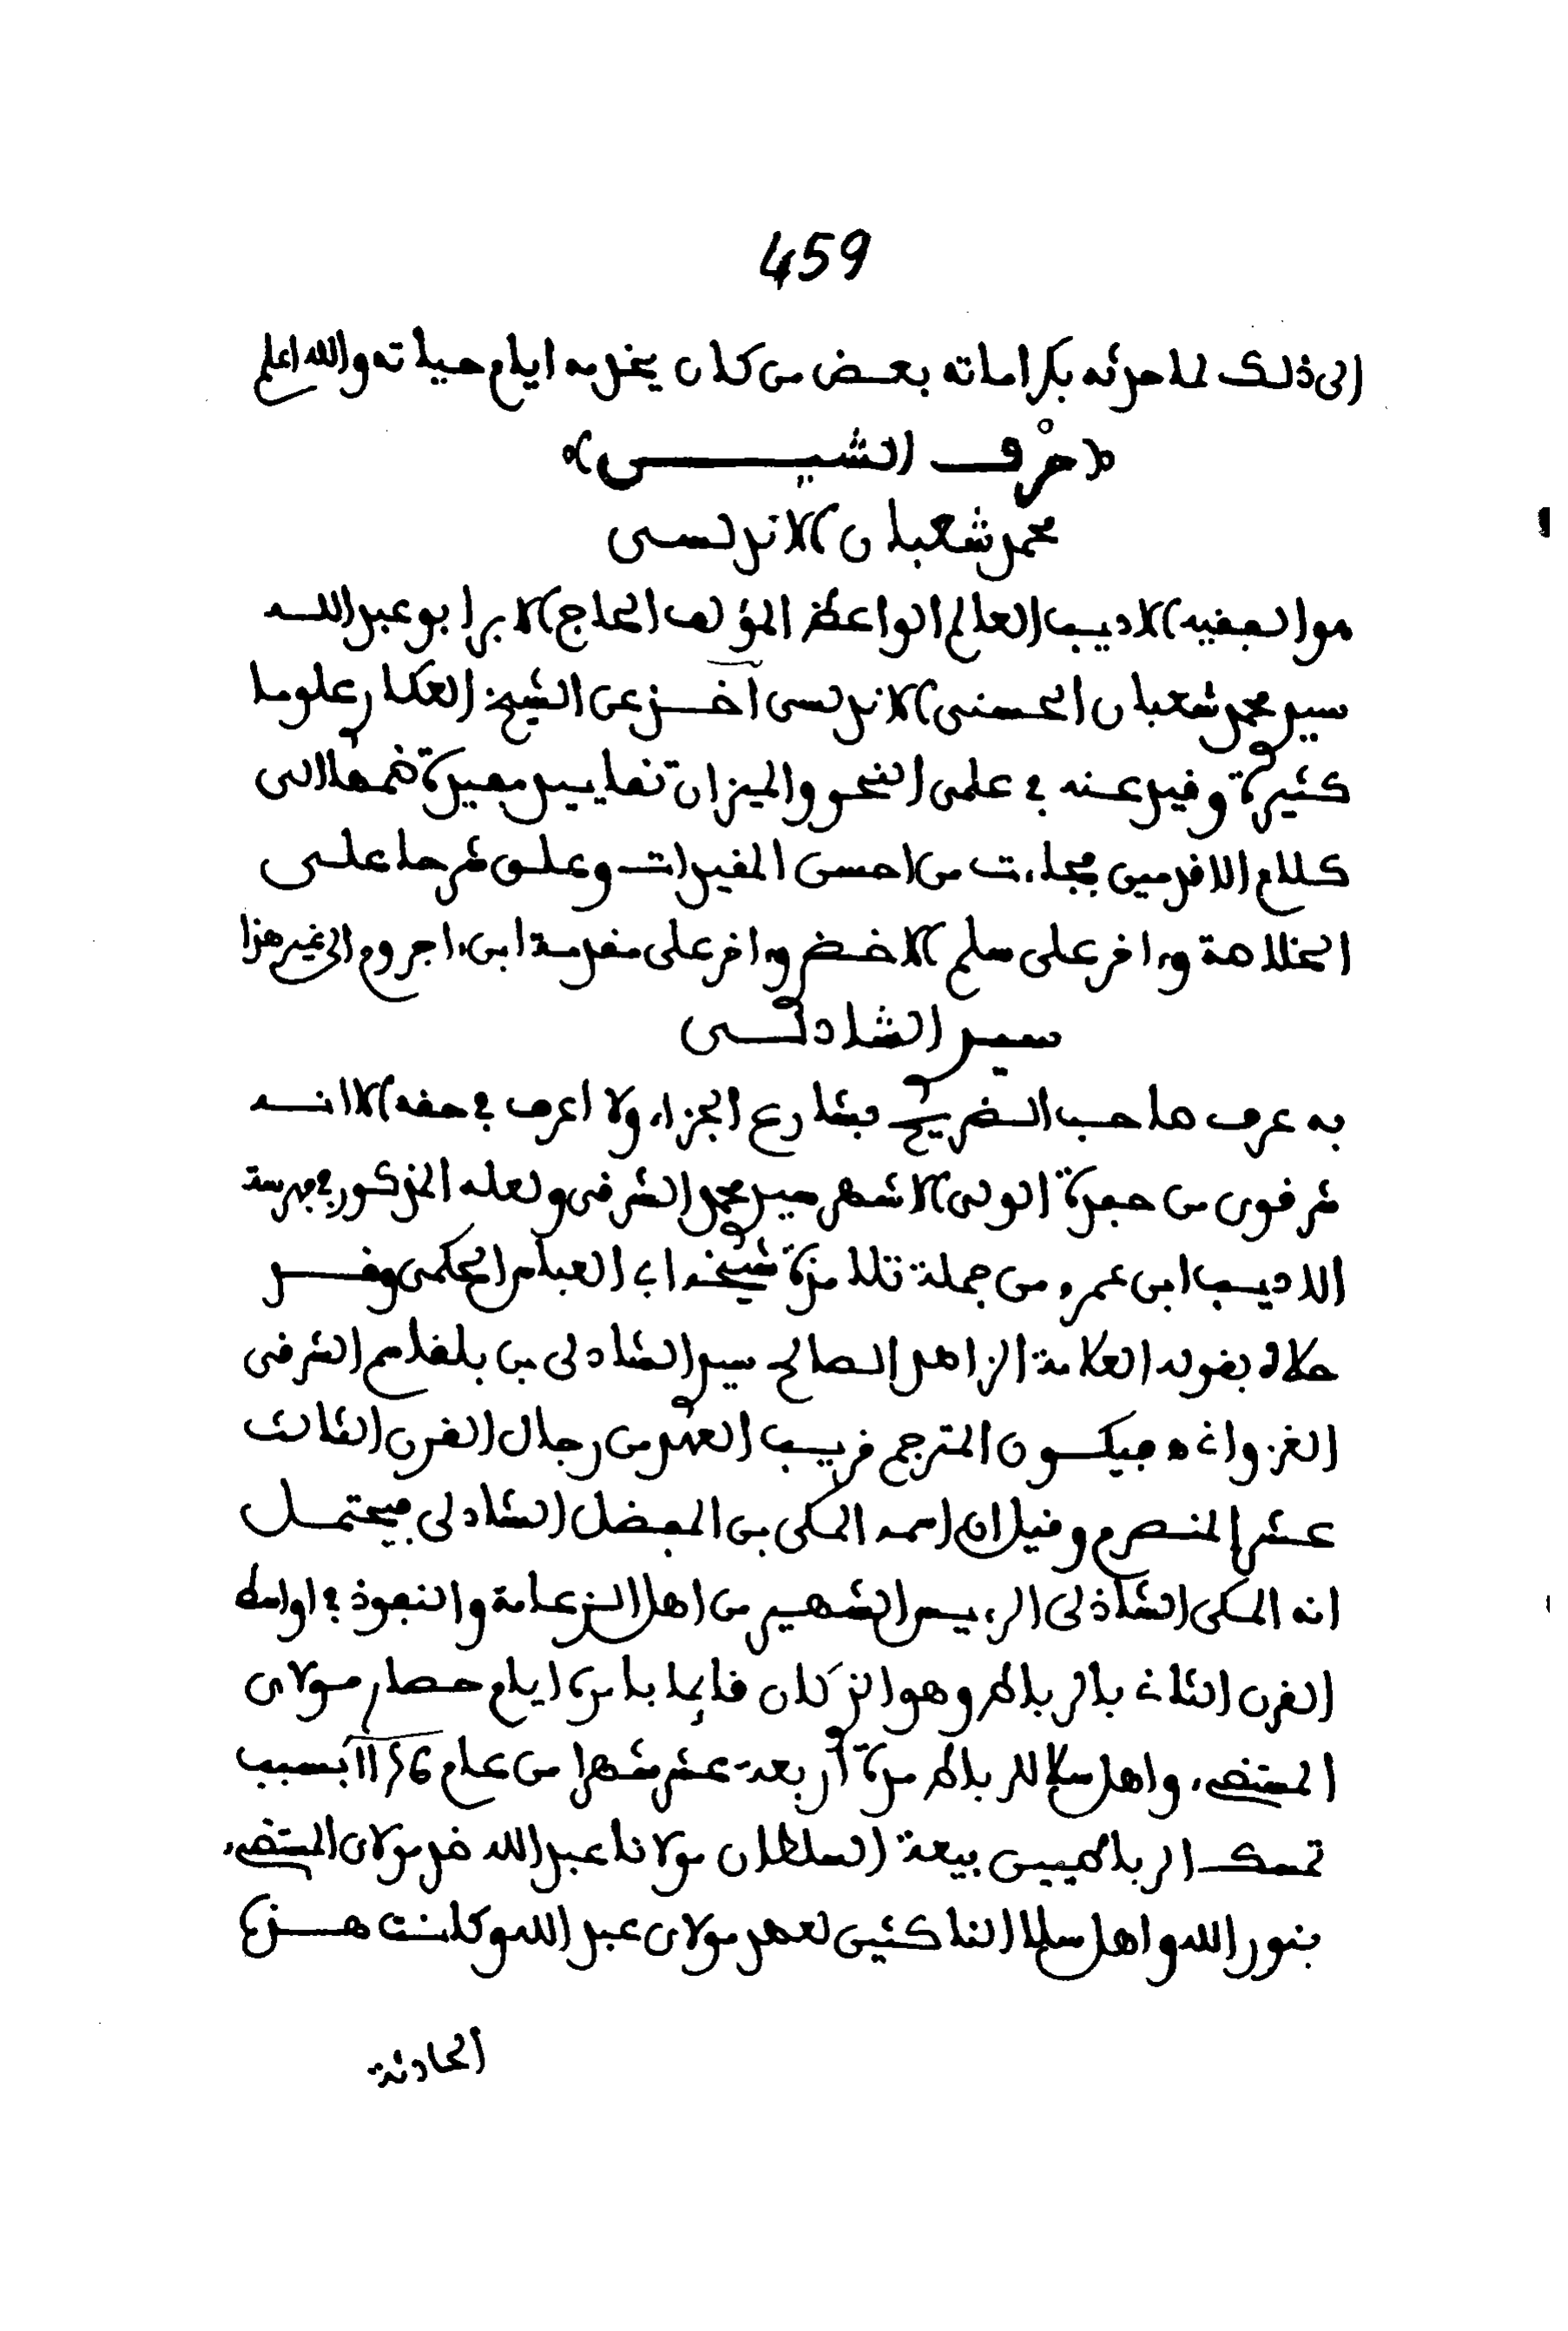 459
الى ذلك لما حدثه بكراماته بعض من كان يخدمه ايام حياته والله اعلم
(حرف الشيــن)
محمد شعبان الاندلسى
هو الفقيه الاديب العالم الواعظ المؤلف الحاج الابر ابو عبد الله
سيدى محمد شعبان الحسنى الاندلسى اخذ عن الشيخ العكارى علوما
كثيرة وقيد عنه فى علمى النحو والميزان تقاييد مفيدة ضمها الى
كلام الاقدمين فجاءت من احسن المقيدات وعلق شرحا على
الخلاصة وءاخر على سلم الاخضرى وءاخر على مقدمة ابن ءاجروم الى غير هذا
سيدى الشادلى
به عرف صاحب الضريح بشارع الجزاء ولا اعرف فى حقه الا انه
شرقوى من حفدة الولى الاشهر سيدى محمد الشرقى ولعله المذكور فى فهرسة
الاديب ابى عمرو من جملة تلامذة شيخه ابى العباس الحكمى وقد
حلاه بقوله العلامة الزاهد الصالح سيدى الشادلى بن بلقاسم الشرقى
الغزوانى ه فيكون المترجم قريب العهد من رجال القرن الثالث
عشر المنصرم وقيل ان اسمه المكى بن المفضل الشادلى فيحتمل
انه المكى الشاذلى الرءيس الشهير من اهل الزعامة والنفوذ فى اواسط
القرن الثانى بالرباط وهو الذى كان قائما بامره ايام حصار مولاى
المستضىء واهل سلا للرباط مدة أربعة عشر شهرا من عام 1156 بسبب
تمسك الرباطيين ببيعة السلطان مولانا عبد الله ضد مولاى المستضىء
بنور الله واهل سلا الناكثين لعهد مولاى عبد الله وكانت هــذه
الحادثة